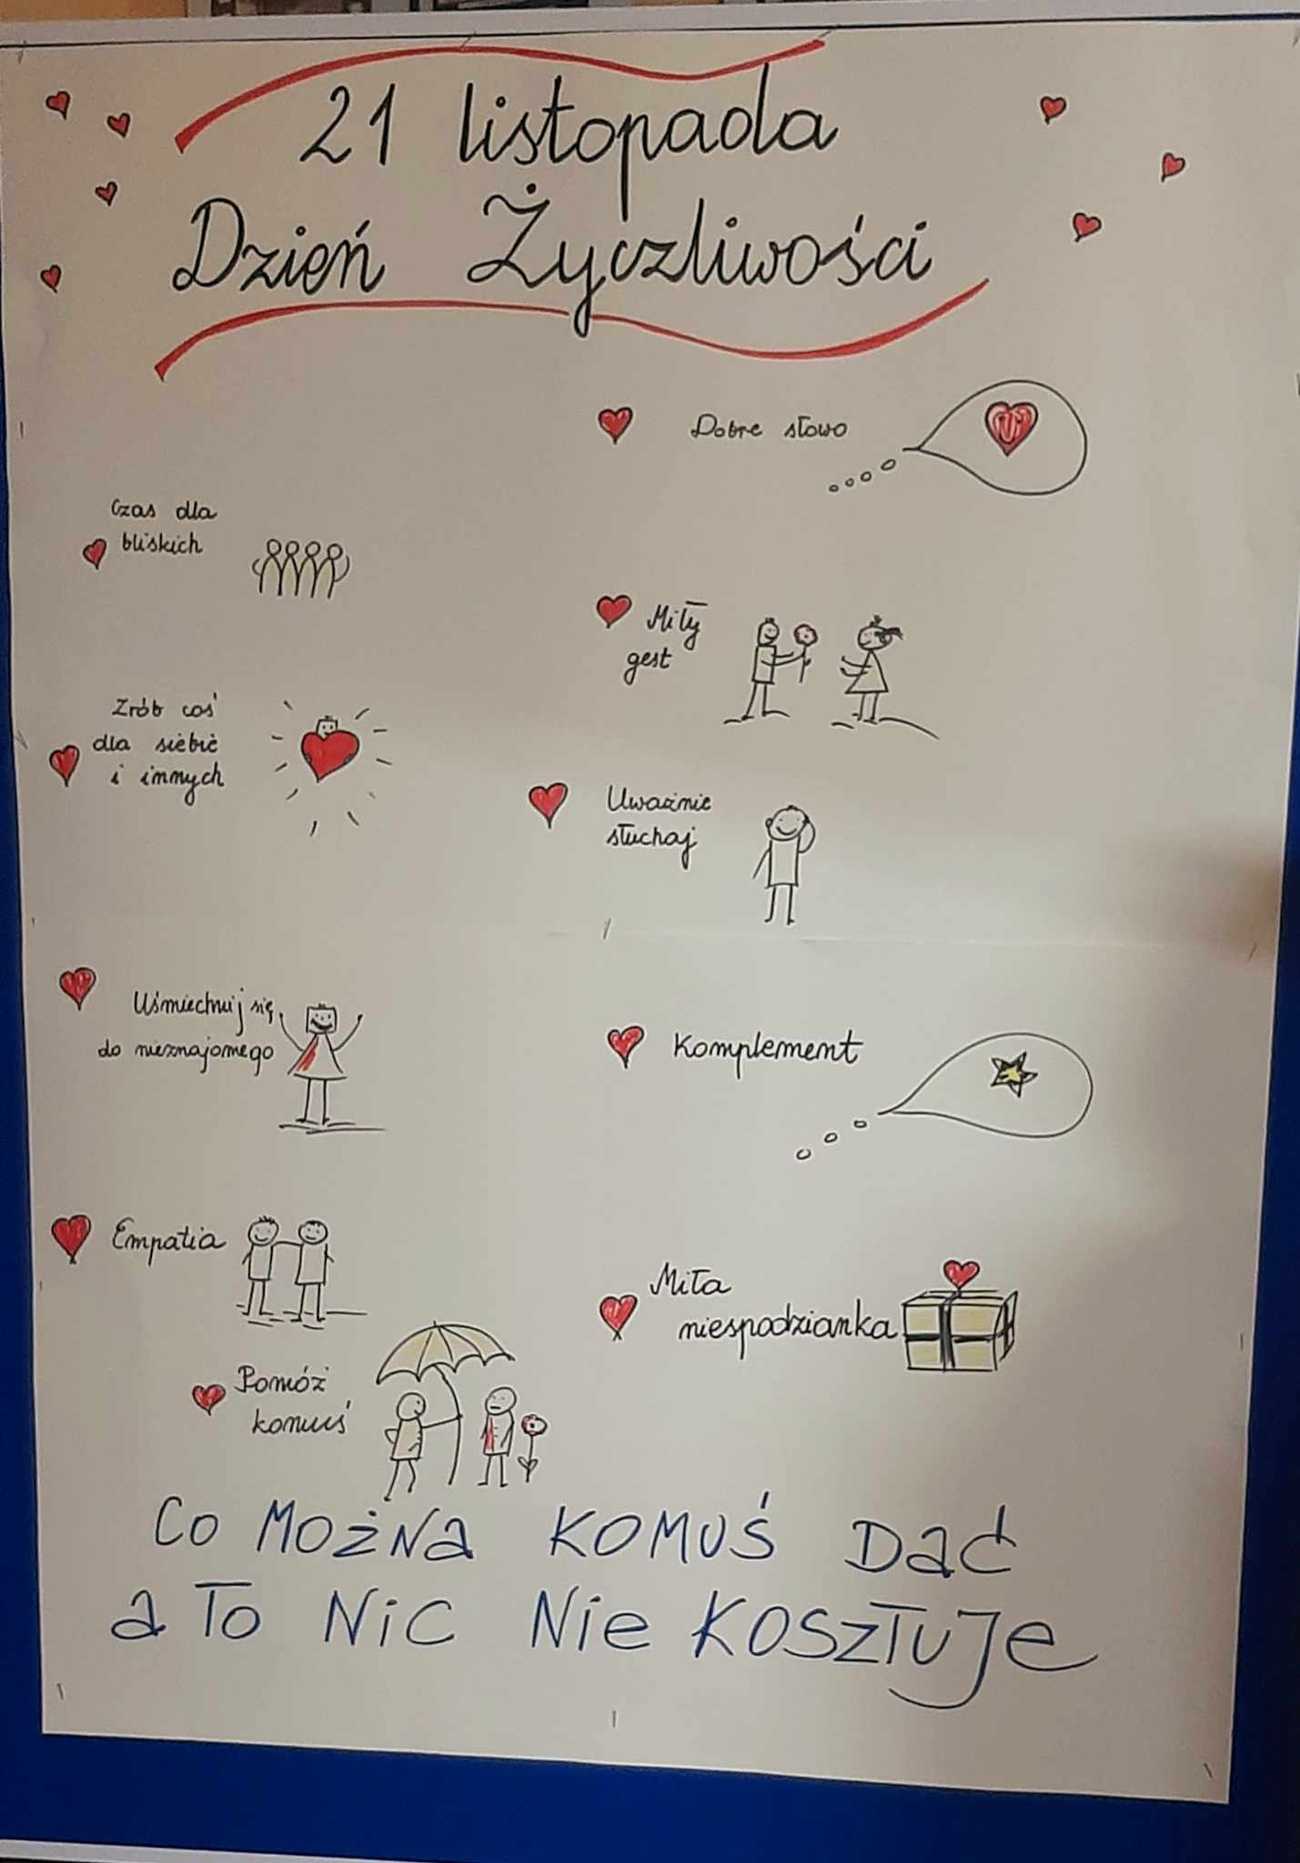 21 listopada
Dzień Życzliwości
Dobre słowo
Czas dla
bliskich
Miły
gest
Zrób coś
dla siebie
i innych
Uważnie
słuchaj
Uśmiechnij się
do nieznajomego
Komplement
Empatia
Miła
niespodzianka
Pomóż
komuś
Co MOżNa KOMUŚ Dać
a To NiC Nie KOSZTUJe